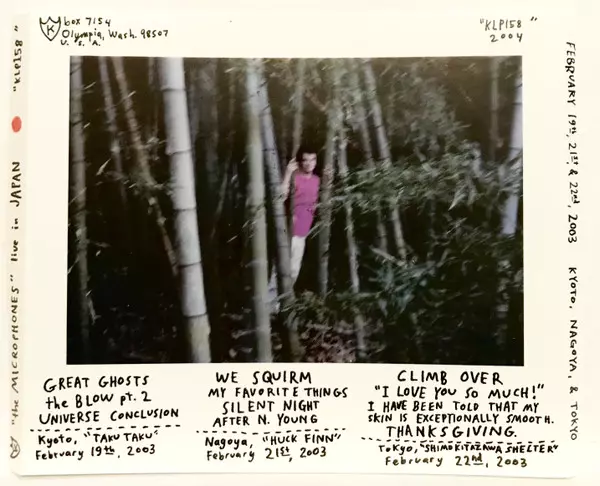 K
box 7154
Olympia, Wash. 98507
U.S.A.
"KLP158"
2004
"KLP158"
"the MICROPHONES" live in JAPAN
K
FEBRUARY 19th, 21st & 22nd, 2003 KYOTO, NAGOYA, & TOKYO
GREAT GHOSTS
the BLOW pt. 2
UNIVERSE CONCLUSION
Kyoto, "TAKU TAKU"
February 19th, 2003
WE SQUIRM
MY FAVORITE THINGS
SILENT NIGHT
AFTER N. YOUNG
Nagoya, "HUCK FINN"
February 21st, 2003
CLIMB OVER
"I LOVE YOU SO MUCH!"
I HAVE BEEN TOLD THAT MY
SKIN IS EXCEPTIONALLY SMOOTH.
THANKSGIVING.
Tokyo, "SHIMOKITAZAWA SHELTER"
February 22nd, 2003